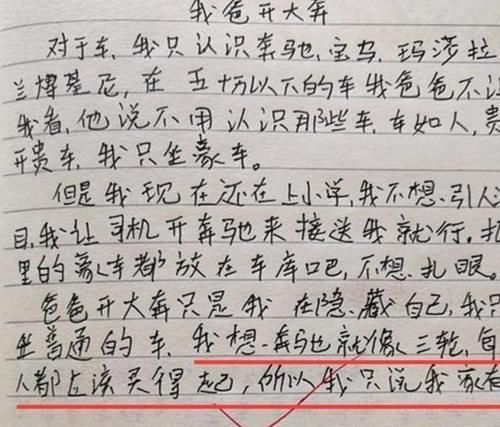 我爸开大奔
对于车,我只认识奔驰,宝马,玛莎拉
兰博基尼,在五十万以下的车我爸爸不
我看,他说不用认识那些车,车如人,贵
开贵车,我只坐豪车。
但是我现在还在上小学,我不想引人
目,我让司机开奔驰来接送我就行。
里的豪车都放在车库吧,不想扎眼。
爸爸开大奔只是我在隐藏自己,我只
坐普通的车,我想奔驰就像三轮,每
人都应该买得起,所以我只说我家有